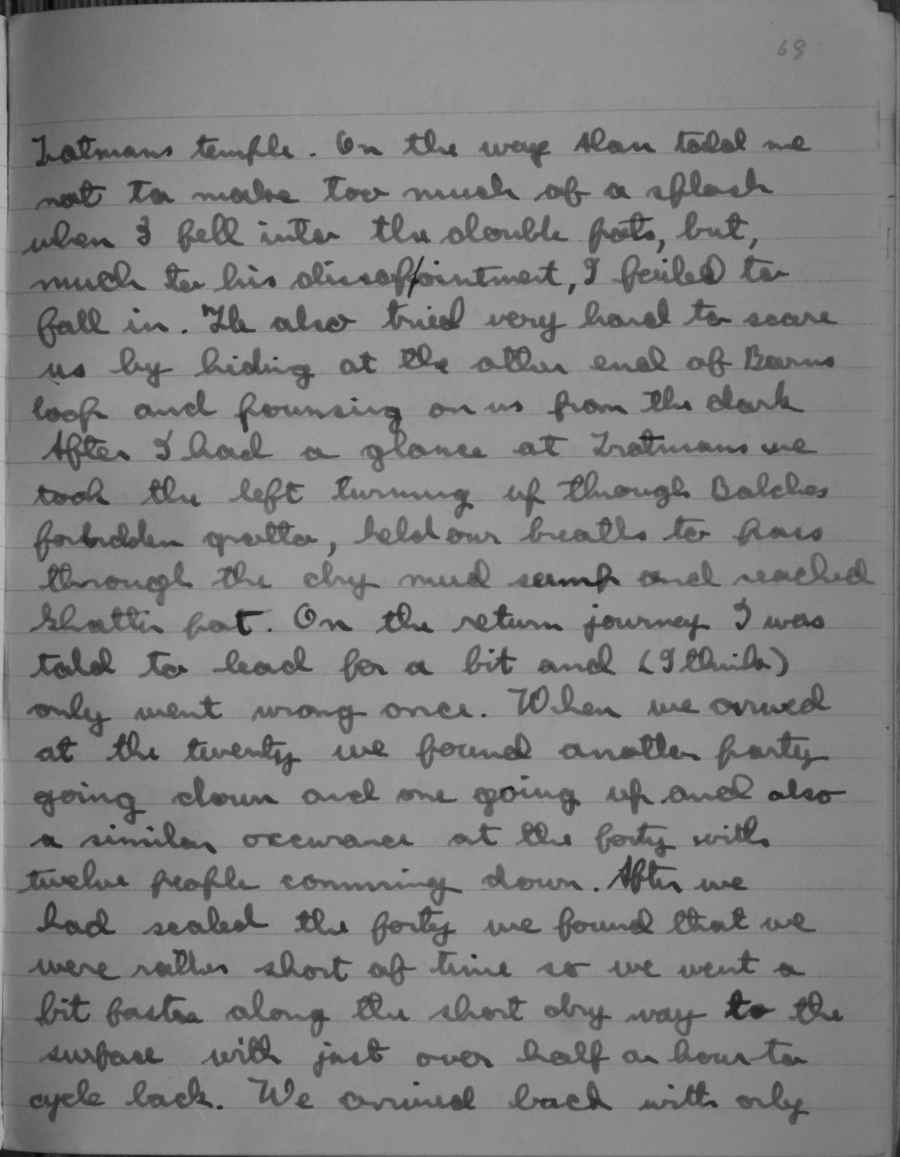 69
Tratmans temple. On the way Alan told me
not to make too much of a splash
when I fell into the double pots, but,
much to his dissappointment, I failed to
fall in. He also tried very hard to scare
us by hiding at the other end of Barns
loop and pouncing on us from the dark
After I had a glance at Tratmans we
took the left turning up through Balches
forbidden grotto, held our breaths to pass
through the dry mud sump and reached
Shatter pot. On the return journey I was
told to lead for a bit and (I think)
only went wrong once. When we arrived
at the twenty we found another party
going down and one going up and also
a similar occurance at the forty with
twelve people comming down. After we
had scaled the forty we found that we
were rather short of time so we went a
bit faster along the short dry way to the
surface with just over half an hour to
cycle back. We arrived back with only